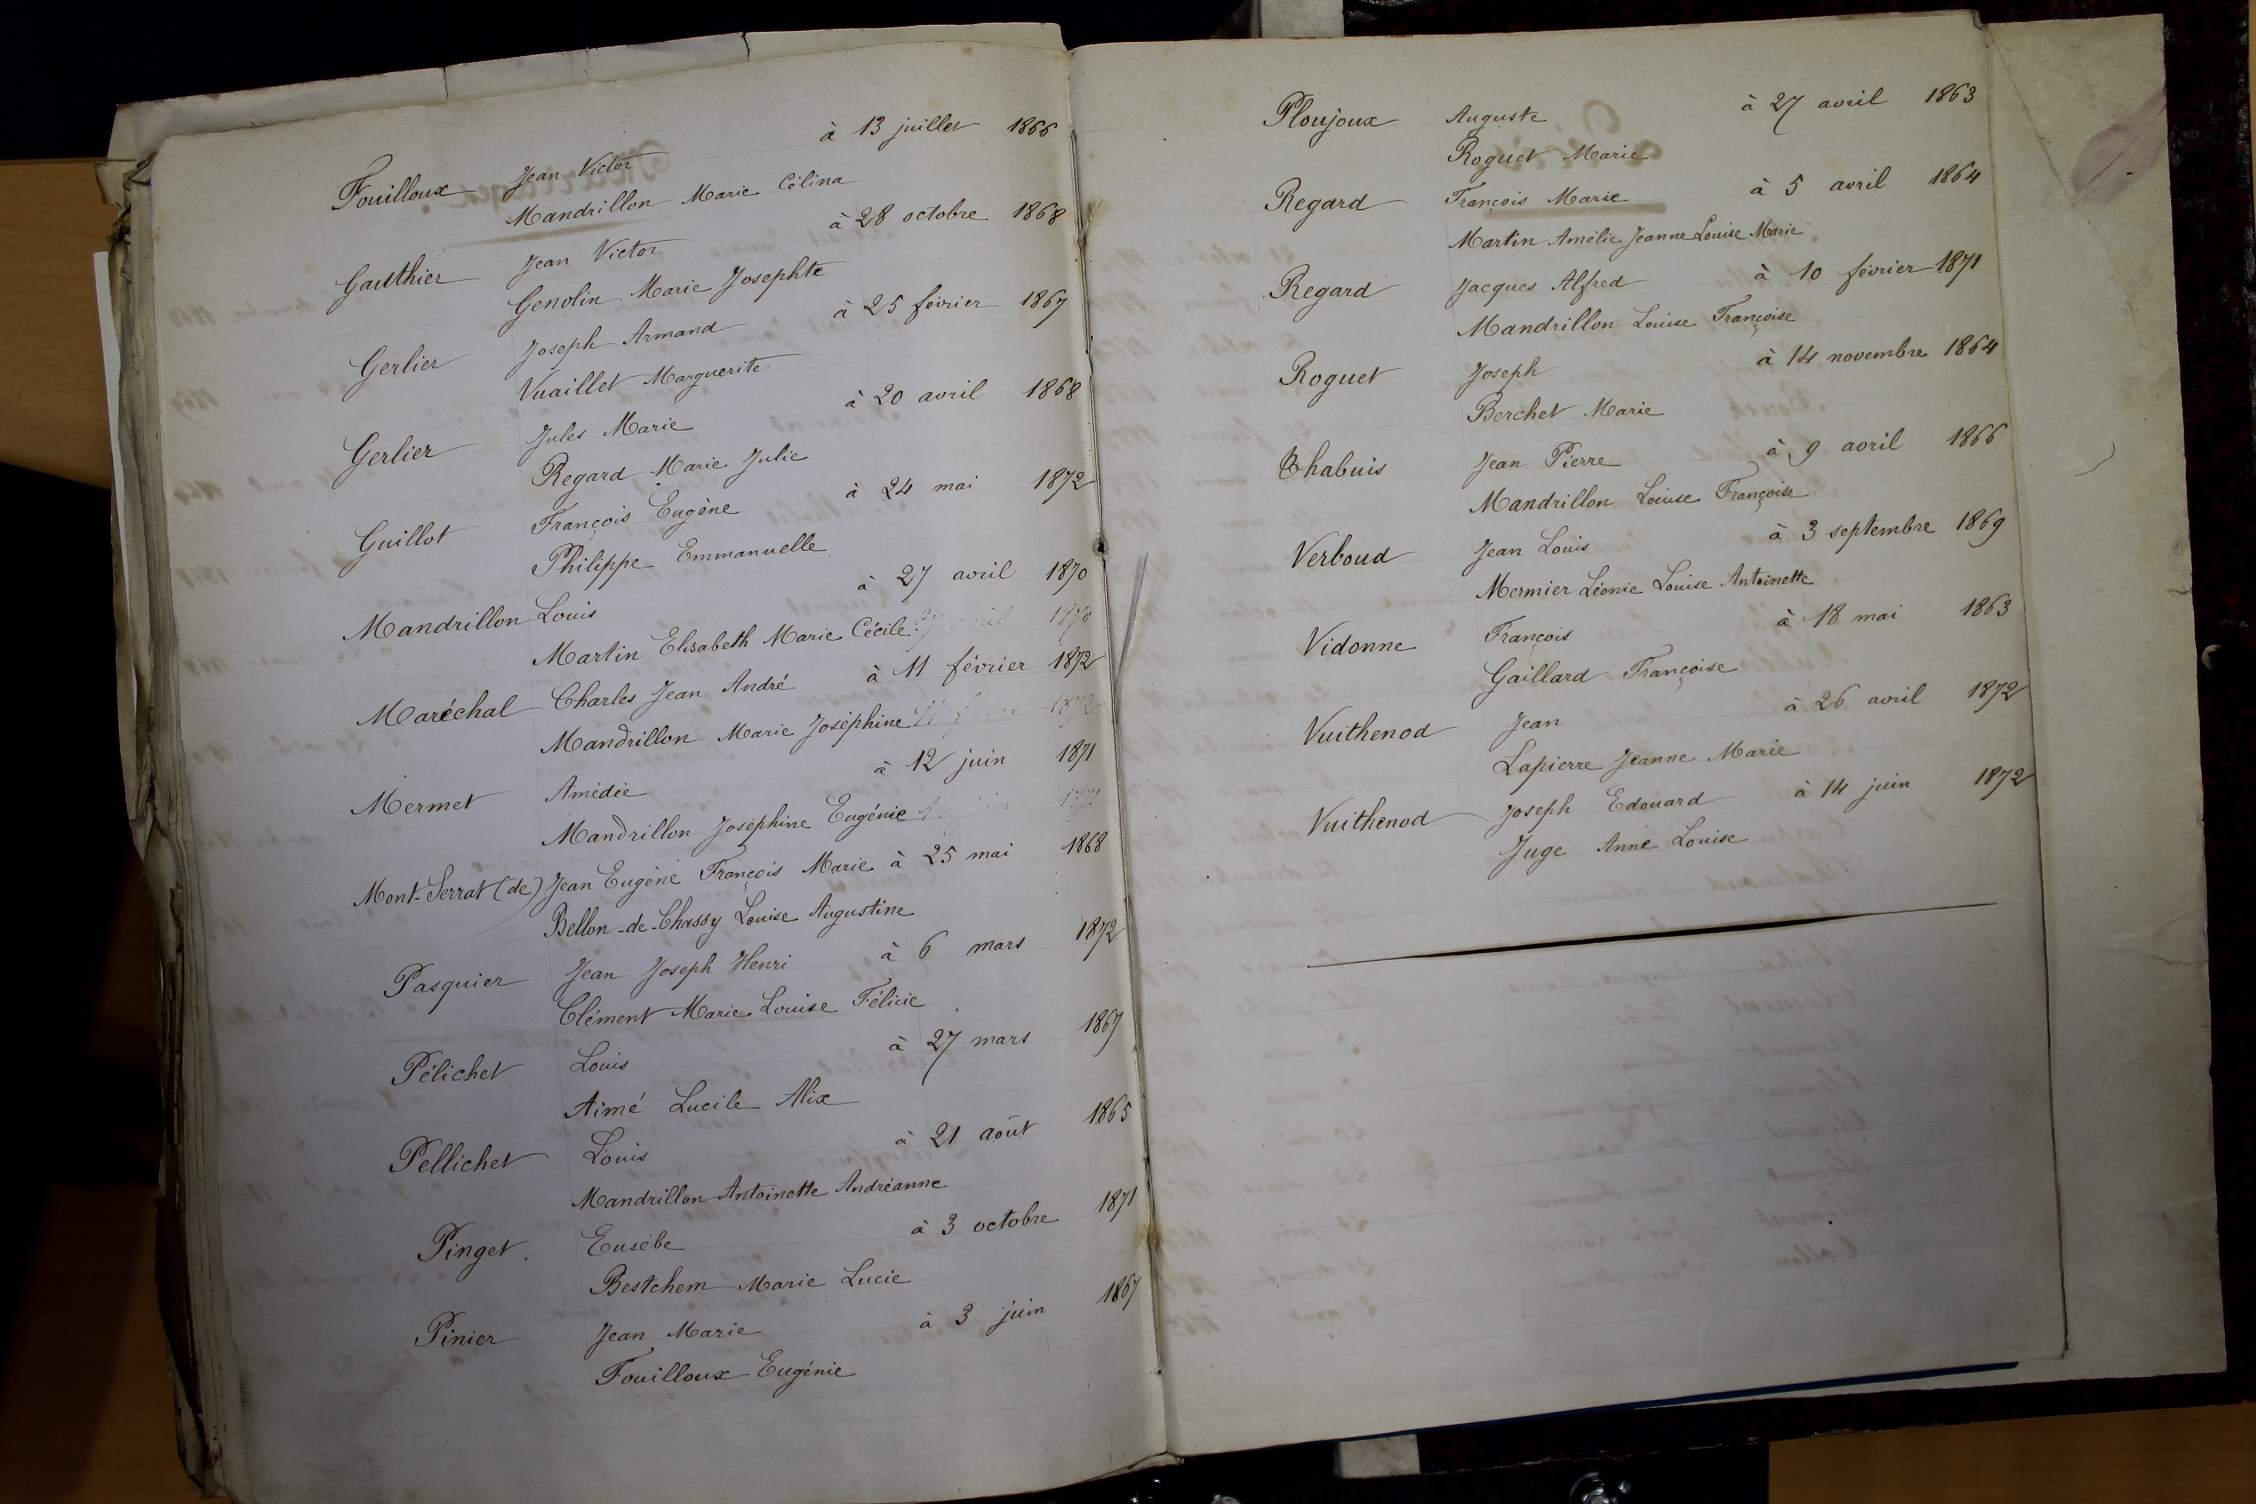 Fouilloux Jean Victor à 13 juillet 1866
Mandrillon Marie Célina
Gauthier Jean Victor à 28 octobre 1868
Genolin Marie Josephte
Gerlier Joseph Armand à 25 février 1867
Vuaillet Marguerite
Gerlier Jules Marie à 20 avril 1868
Regard Marie Julie
Guillot François Eugène à 24 mai 1872
Philippe Emmanuelle
Mandrillon Louis à 27 avril 1870
Martin Elisabeth Marie Cécile
Maréchal Charles Jean André à 11 février 1872
Mandrillon Marie Joséphine
Mermet Amédée à 12 juin 1871
Mandrillon Joséphine Eugénie
Mont-Serrat (de) Jean Eugène François Marie à 25 mai 1868
Bellon-de-Chassy Louise Augustine
Pasquier Jean Joseph Henri à 6 mars 1872
Clément Marie Louise Félicie
Pélichet Louis à 27 mars 1867
Aimé Lucile Alix
Pellichet Louis à 21 août 1865
Mandrillon Antoinette Andréanne
Pinget Eusèbe à 3 octobre 1871
Bestchem Marie Lucie
Pinier Jean Marie à 3 juin 1867
Fouilloux Eugénie
Ploujoux Auguste à 27 avril 1863
Roguet Marie
Regard François Marie à 5 avril 1864
Martin Amélie Jeanne Louise Marie
Regard Jacques Alfred à 10 février 1871
Mandrillon Louise Françoise
Roguet Joseph à 14 novembre 1864
Berchet Marie
Chabuis Jean Pierre à 9 avril 1866
Mandrillon Louise Françoise
Verboud Jean Louis à 3 septembre 1869
Mermier Léonie Louise Antoinette
Vidonne François à 18 mai 1863
Gaillard Françoise
Vuithenod Jean à 26 avril 1872
Lapierre Jeanne Marie
Vuithenod Joseph Edouard à 14 juin 1872
Juge Anne Louise